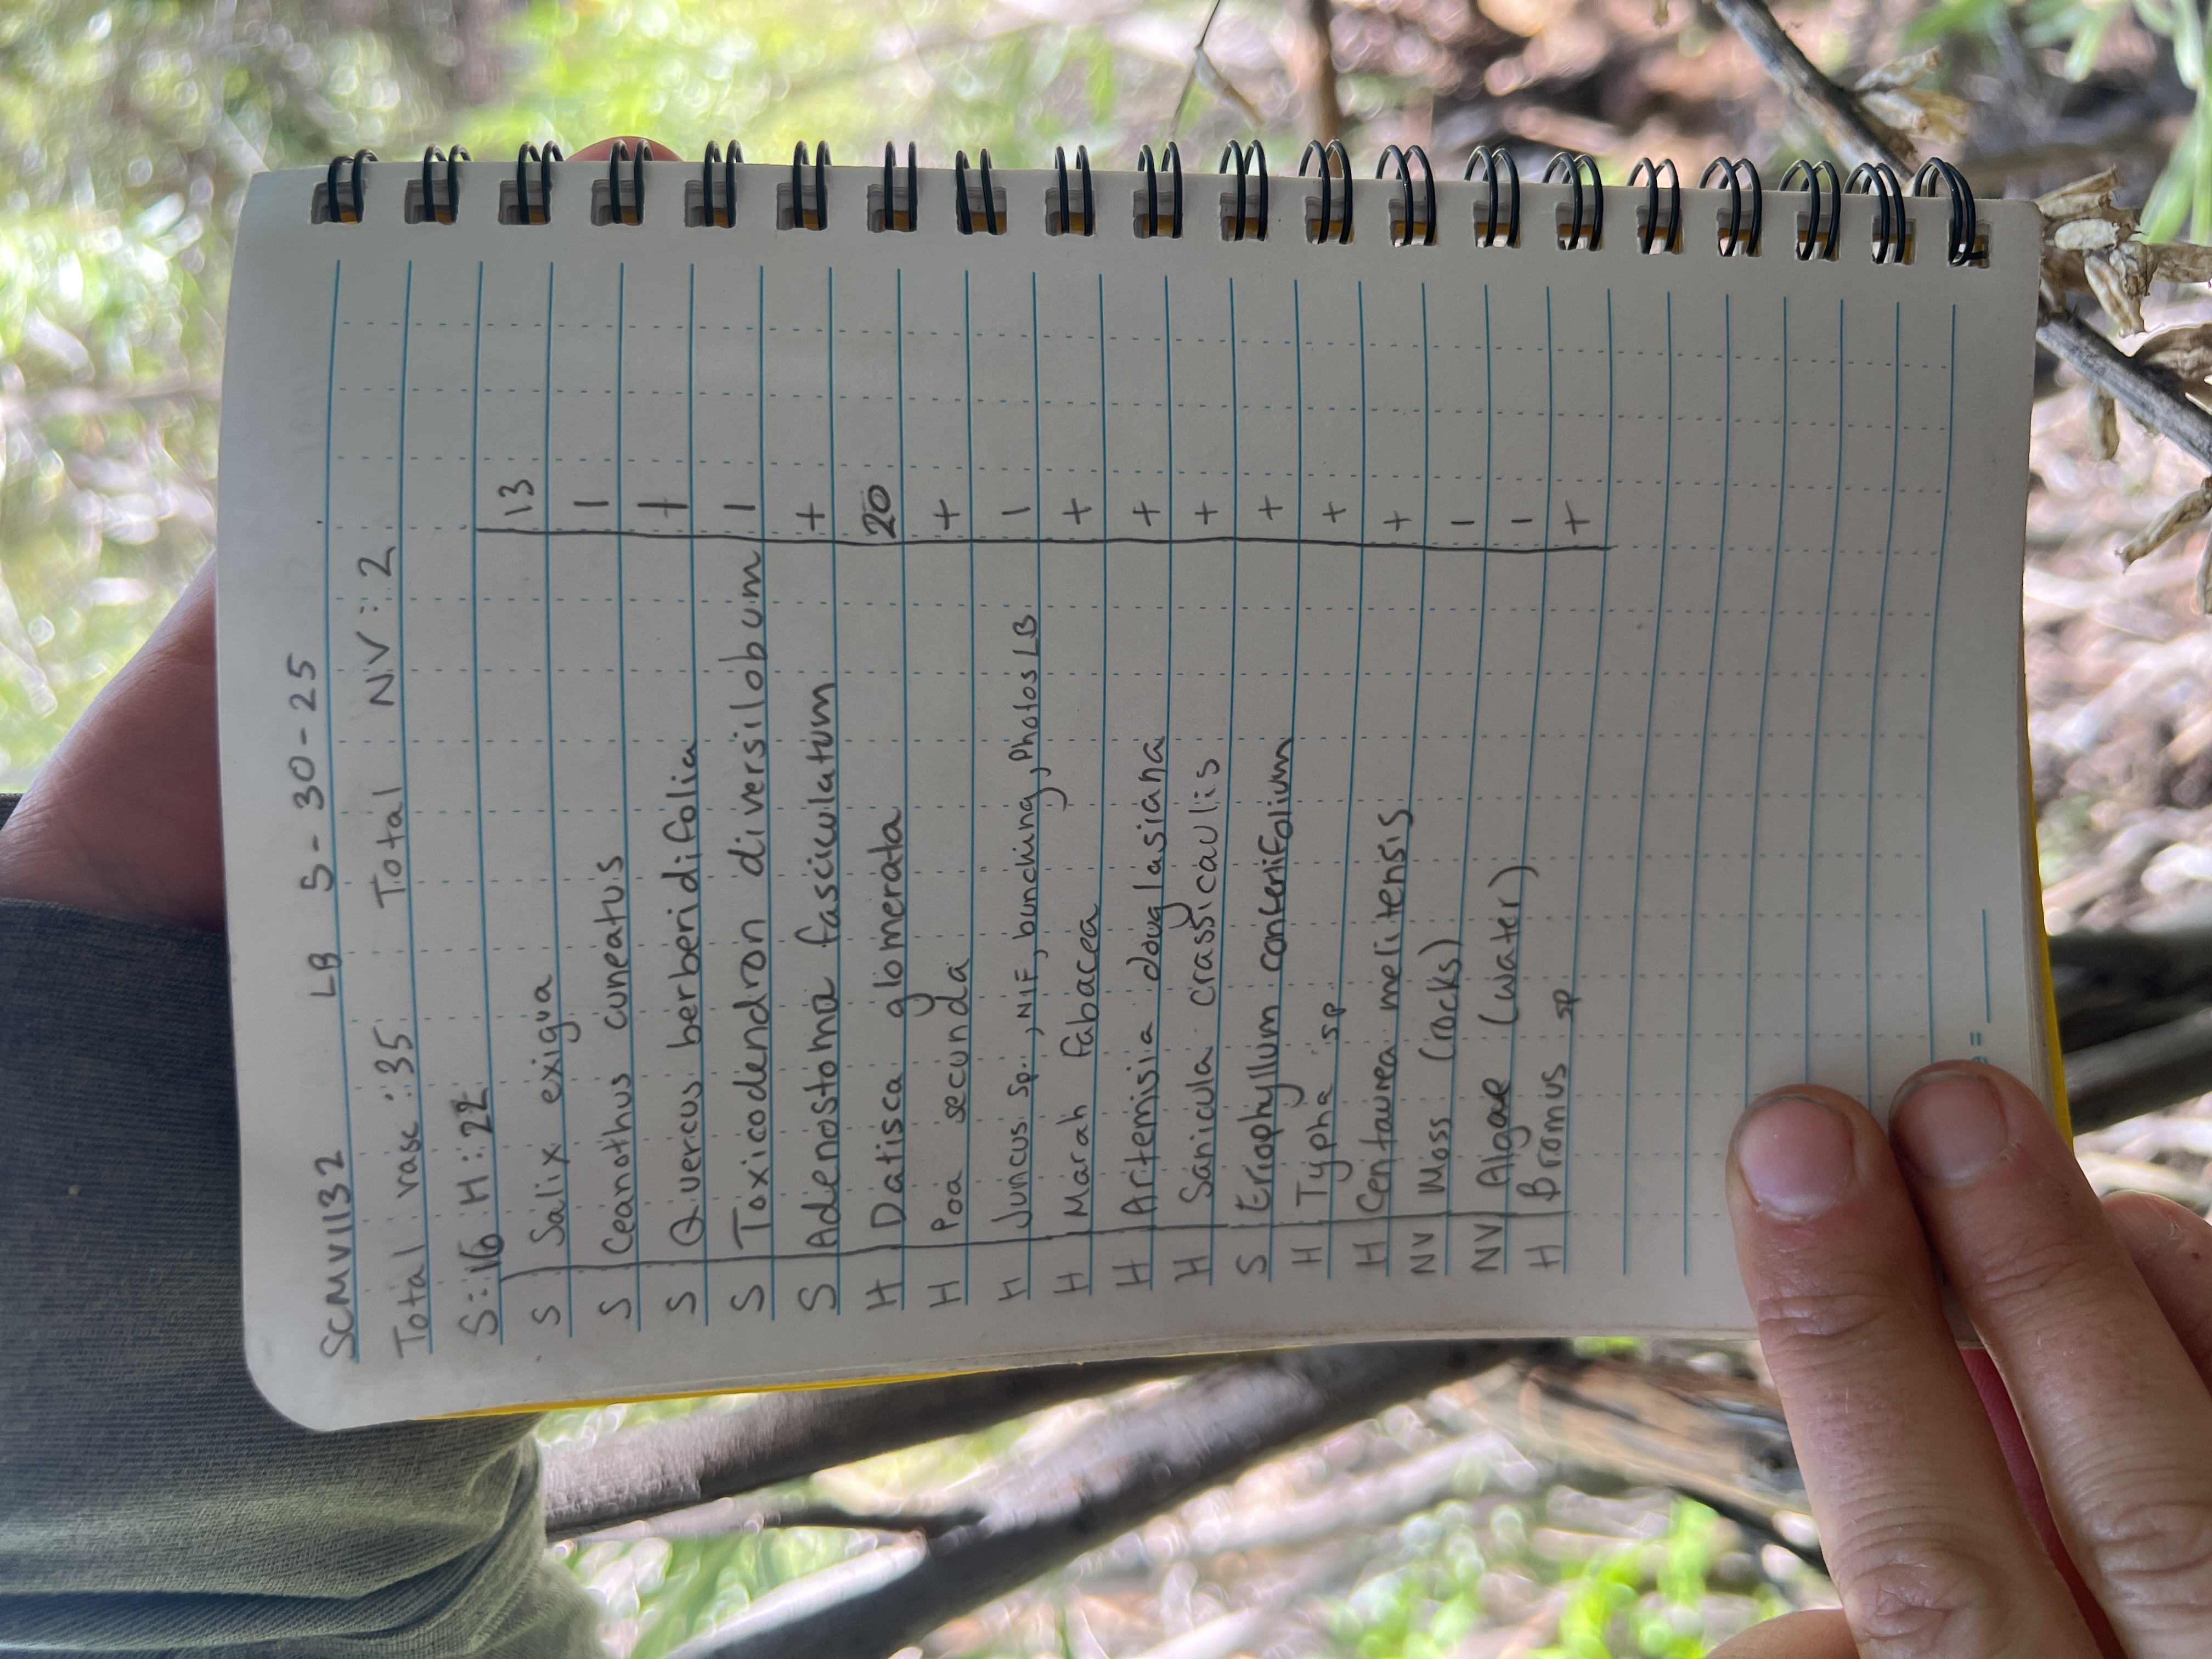 SCMV1132 LB 5-30-25
Total vasc: 35 Total NV: 2
S: 16 H: 22
S Salix exigua 13
S Ceanothus cuneatus 1
S Quercus berberidifolia +
S Toxicodendron diversilobum 1
S Adenostoma fasciculatum +
H Datisca glomerata 20
H Poa secunda +
H Juncus sp., NIF, bunching, Photos LB 1
H Marah fabacea +
H Aritemisia douglasiana +
H Sanicula crassicaulis +
S Eriophyllum confertifolium +
H Typha sp +
H Centaurea melitensis +
NV Moss (rocks) 1
NV Algae (water) 1
H Bromus sp +